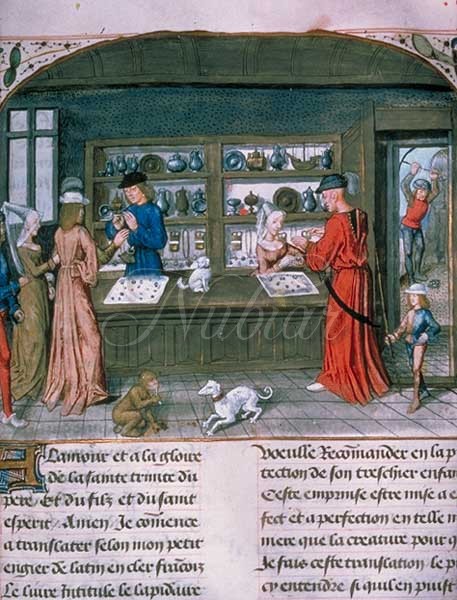 A Lamour et a la gloire
de la sainte trinite du
pere Et du filz et du saint
esperit / Amen Je comence
a translater selon mon petit
engier de latin en cler francois
Le livre Intitule le lapidaire
voeulle Recomander en la p
tection de son treschier enfan
Ceste emprinse estre mise a e
fect et a perfection en telle m
niere que la creature pour q
Je fais ceste translation le p
cy entendre si quil en puist
Nubiar